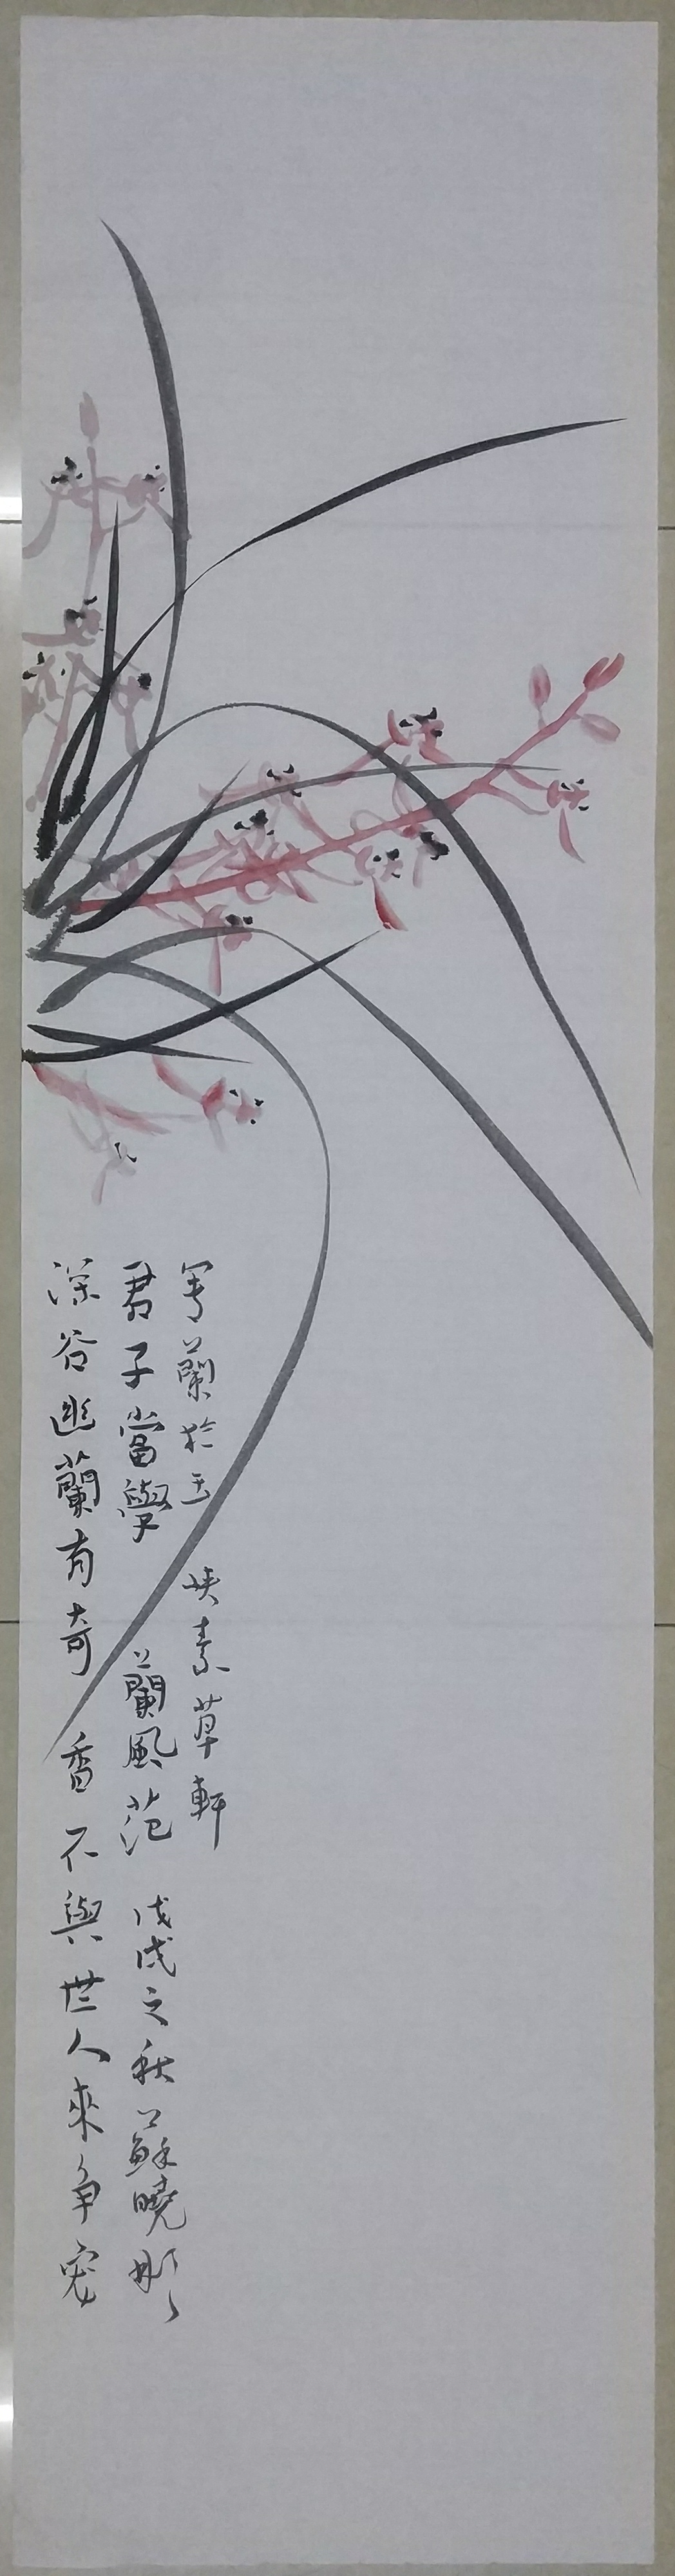 深谷幽蘭有奇香不與世人來争宠
君子當學蘭風范 戊戌之秋蘇曉彤
寫蘭於玉峡素草軒